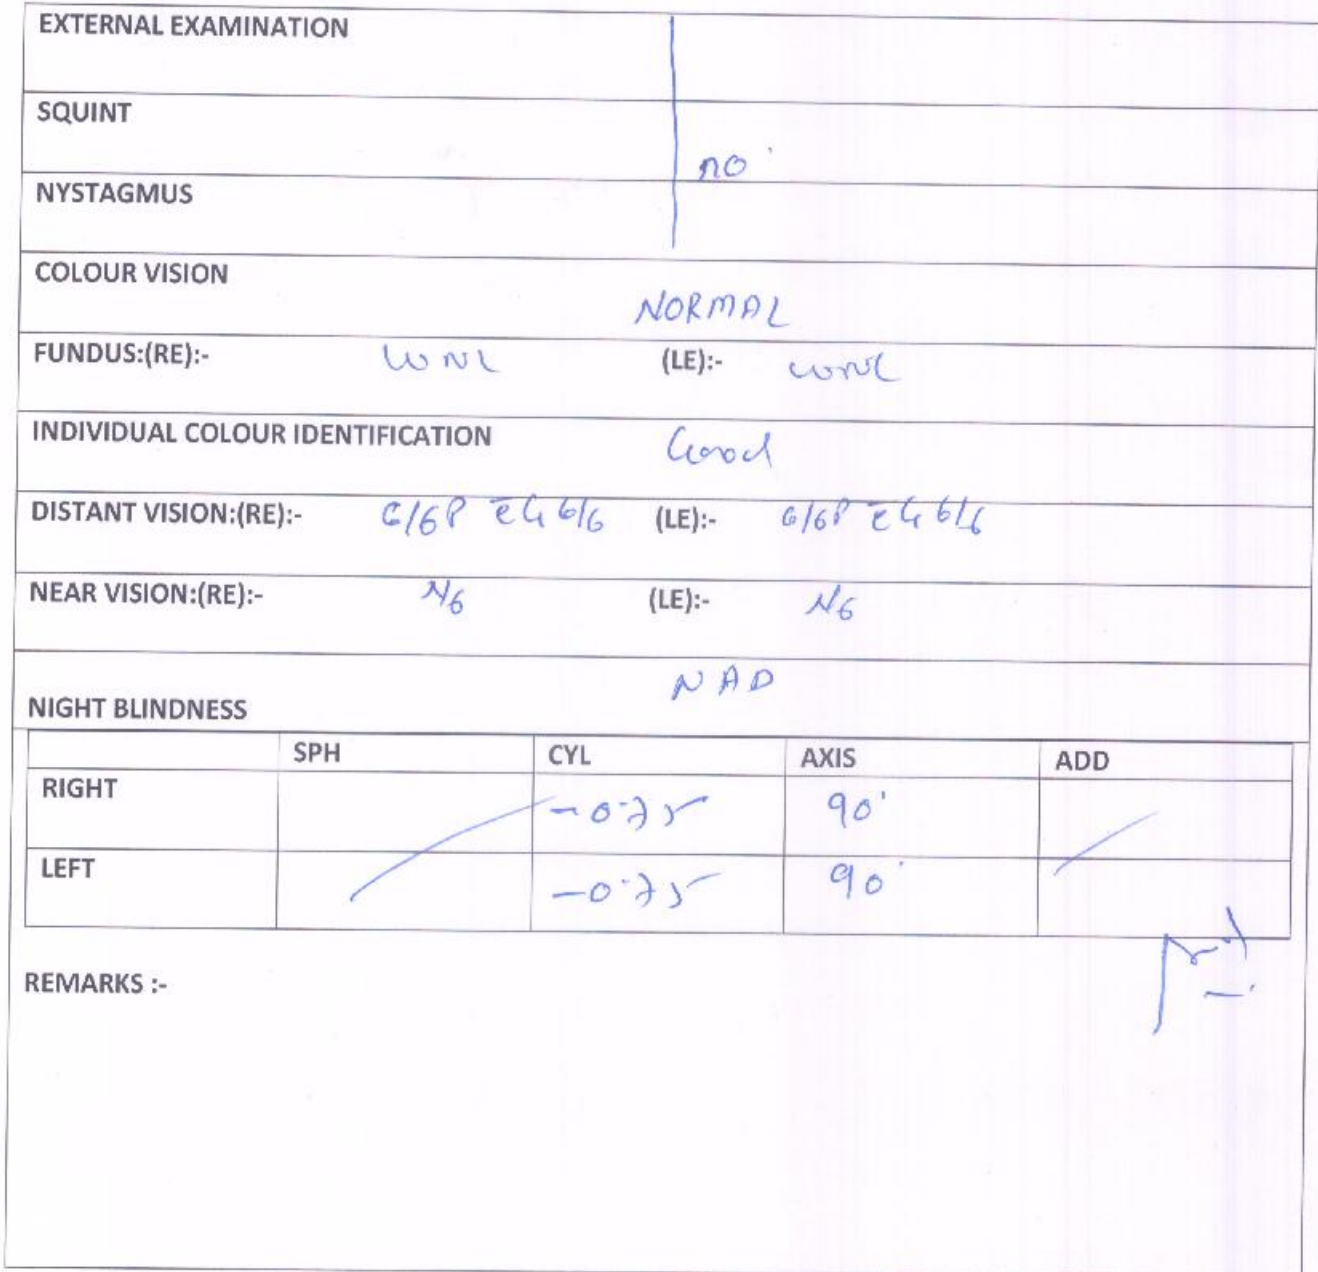 EXTERNAL EXAMINATION
SQUINT
no
NYSTAGMUS
COLOUR VISION
NORMAL
FUNDUS:(RE):- WNL (LE):- WNL
INDIVIDUAL COLOUR IDENTIFICATION Good
DISTANT VISION:(RE):- 6/6P c̄ G 6/6 (LE):- 6/6P c̄ G 6/6
NEAR VISION:(RE):- N6 (LE):- N6
NAD
NIGHT BLINDNESS
SPH CYL AXIS ADD
RIGHT -0.75 90°
LEFT -0.75 90°
REMARKS :-